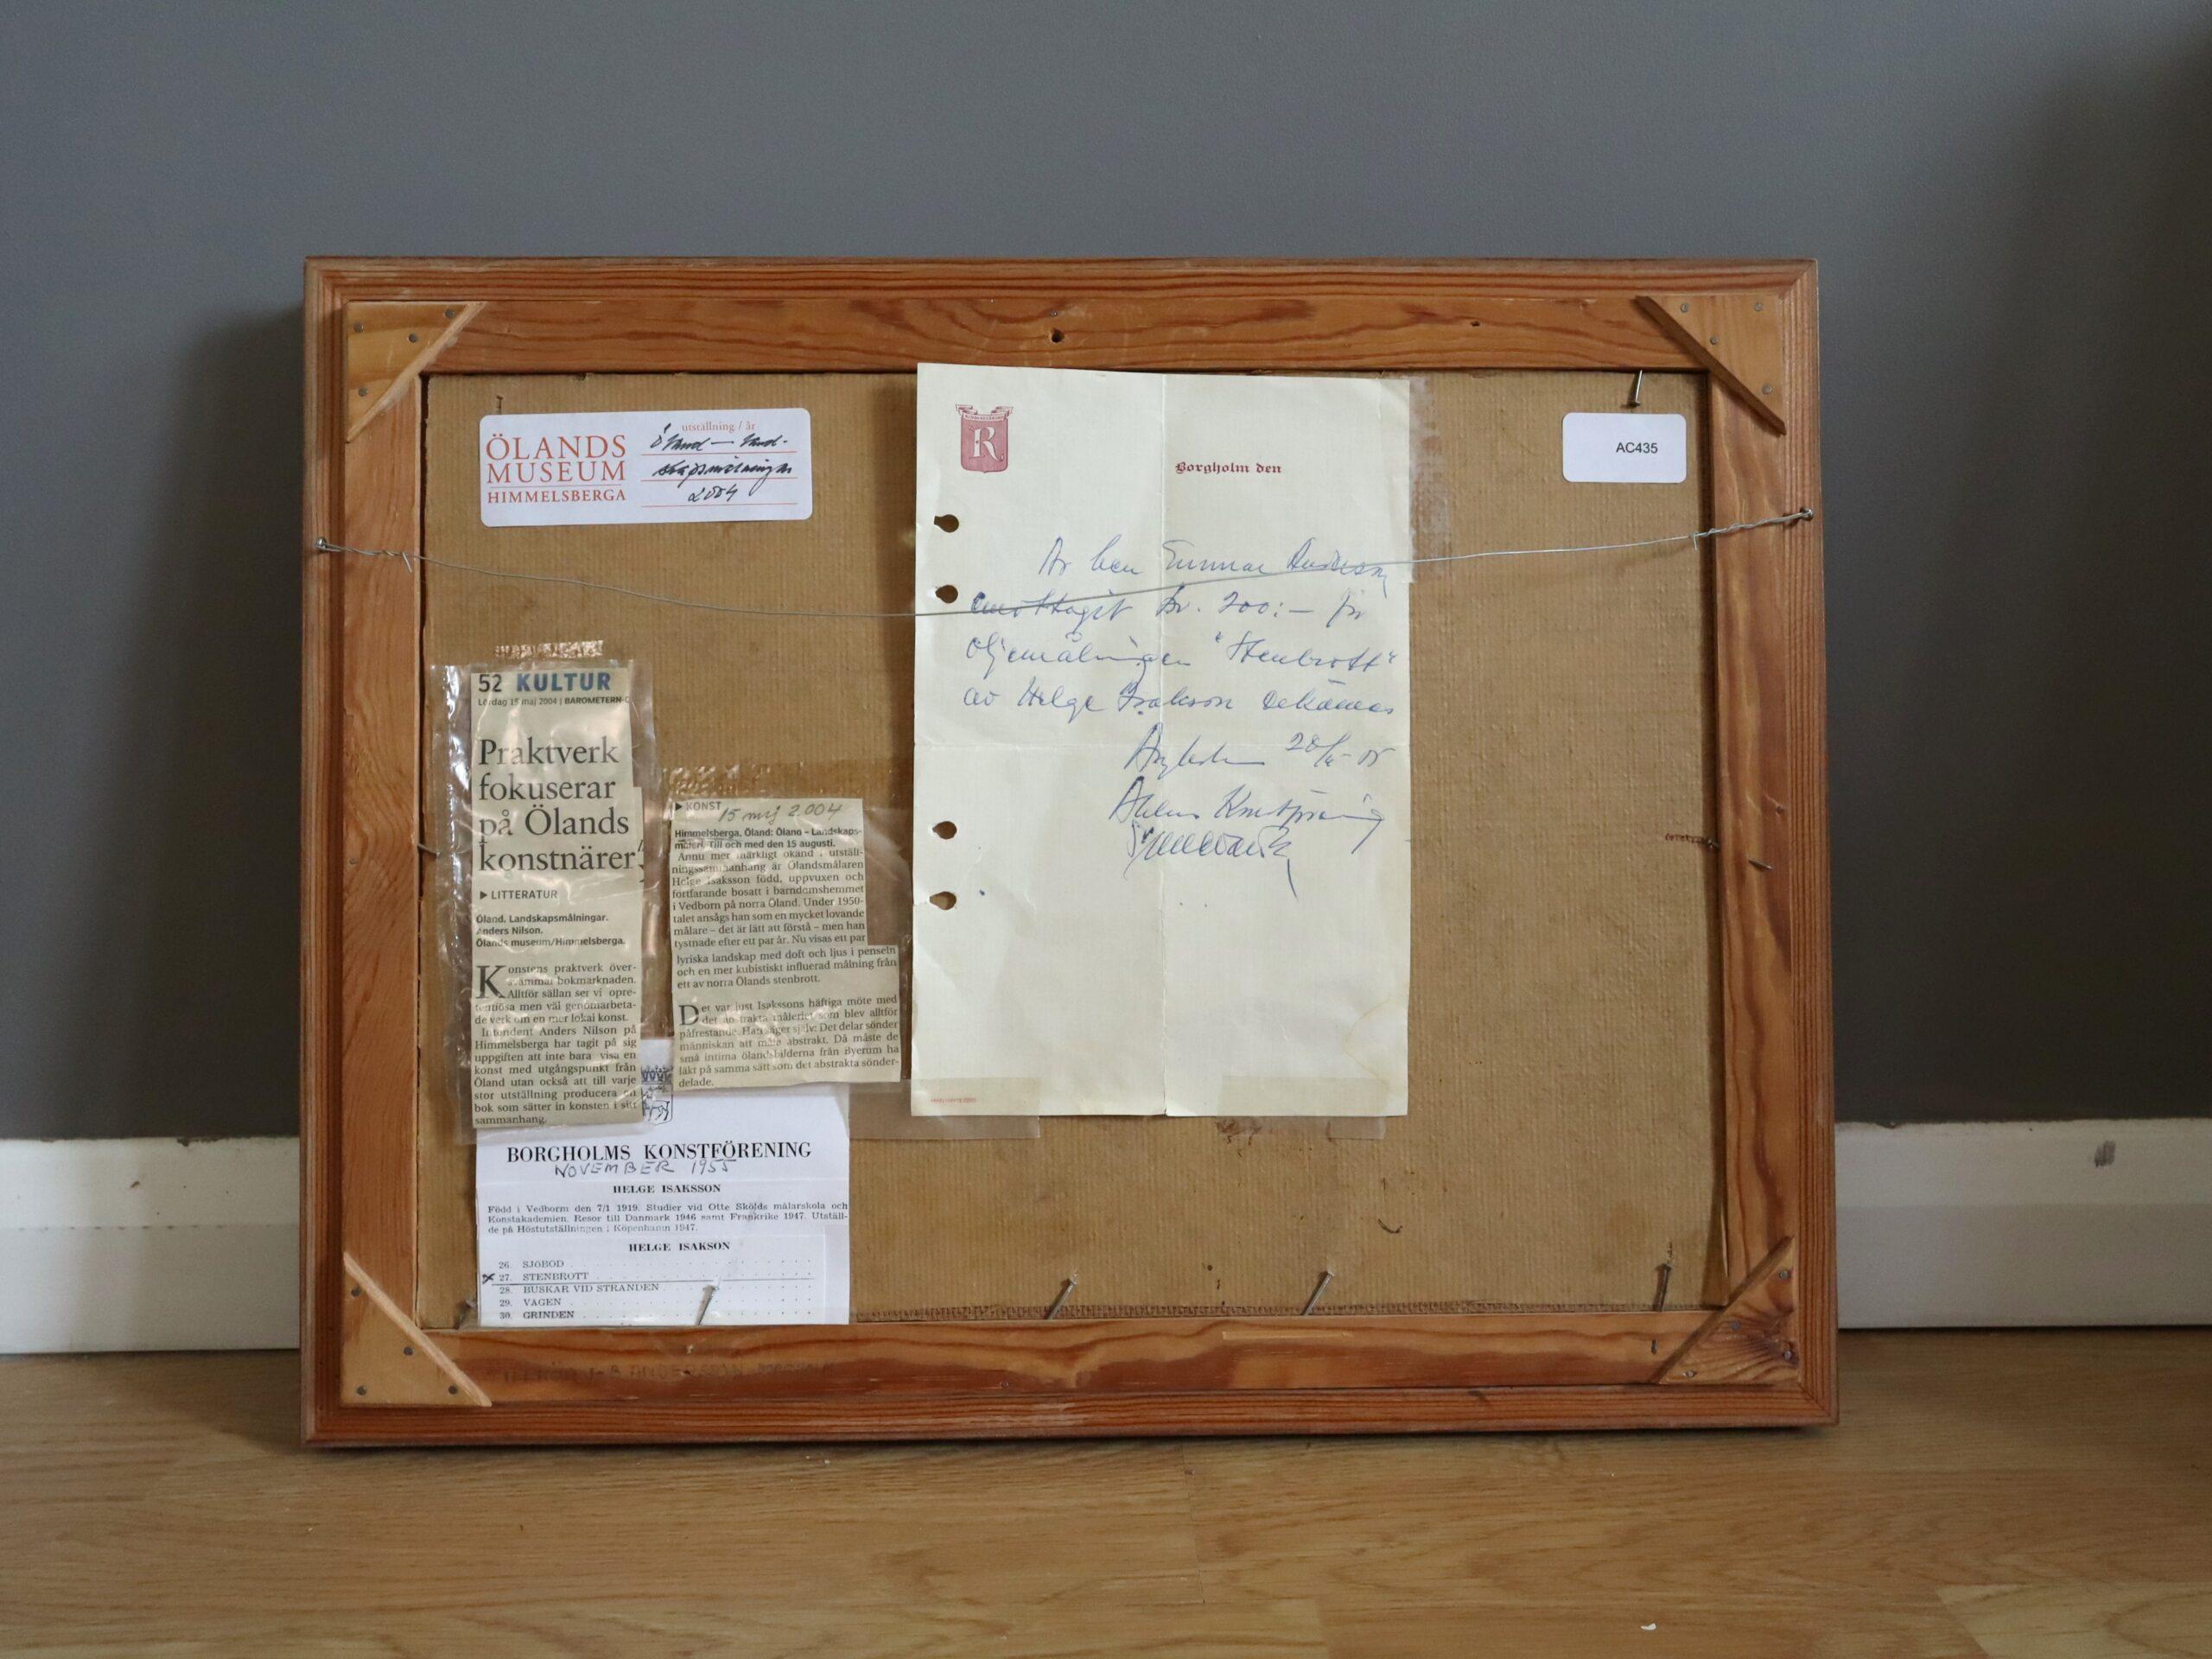 ÖLANDS
MUSEUM
HIMMELSBERGA
utställning / år
Öland – land-
skapsmålningar
2004
AC435
R
Borgholm den
Av herr Gunnar Andersson
mottagit kr. 200:– för
oljemålningen "Stenbrott"
av Helge Isakson
Konstförening
52 KULTUR
Lördag 15 maj 2004 | BAROMETERN-O
Praktverk
fokuserar
på Ölands
konstnärer
▶ LITTERATUR
Öland. Landskapsmålningar.
Anders Nilson.
Ölands museum/Himmelsberga.
Konstens praktverk över-
svämmar bokmarknaden.
Alltför sällan ser vi opre-
tentiösa men väl genomarbeta-
de verk om en mer lokal konst.
Intendent Anders Nilson på
Himmelsberga har tagit på sig
uppgiften att inte bara visa en
konst med utgångspunkt från
Öland utan också att till varje
stor utställning producera en
bok som sätter in konsten i sitt
sammanhang.
▶ KONST
15 maj 2004
Himmelsberga, Öland: Öland – Landskaps-
måleri. Till och med den 15 augusti.
Ännu mer märkligt okänd i utställ-
ningssammanhang är Ölandsmålaren
Helge Isaksson född, uppvuxen och
fortfarande bosatt i barndomshemmet
i Vedborn på norra Öland. Under 1950-
talet ansågs han som en mycket lovande
målare – det är lätt att förstå – men han
tystnade efter ett par år. Nu visas ett par
lyriska landskap med doft och ljus i penseln
och en mer kubistiskt influerad målning från
ett av norra Ölands stenbrott.
Det var just Isakssons häftiga möte med
det abstrakta måleriet som blev alltför
påfrestande. Han säger själv: Det delar sönder
människan att måla abstrakt. Då måste de
små intima ölandsbilderna från Byerum ha
läkt på samma sätt som det abstrakta sönder-
delade.
BORGHOLMS KONSTFÖRENING
NOVEMBER 1955
HELGE ISAKSSON
Född i Vedborm den 7/1 1919. Studier vid Otte Skölds målarskola och
Konstakademien. Resor till Danmark 1946 samt Frankrike 1947. Utställ-
de på Höstutställningen i Köpenhamn 1947.
HELGE ISAKSON
26. SJÖBOD
x 27. STENBROTT
28. BUSKAR VID STRANDEN
29. VÄGEN
30. GRINDEN